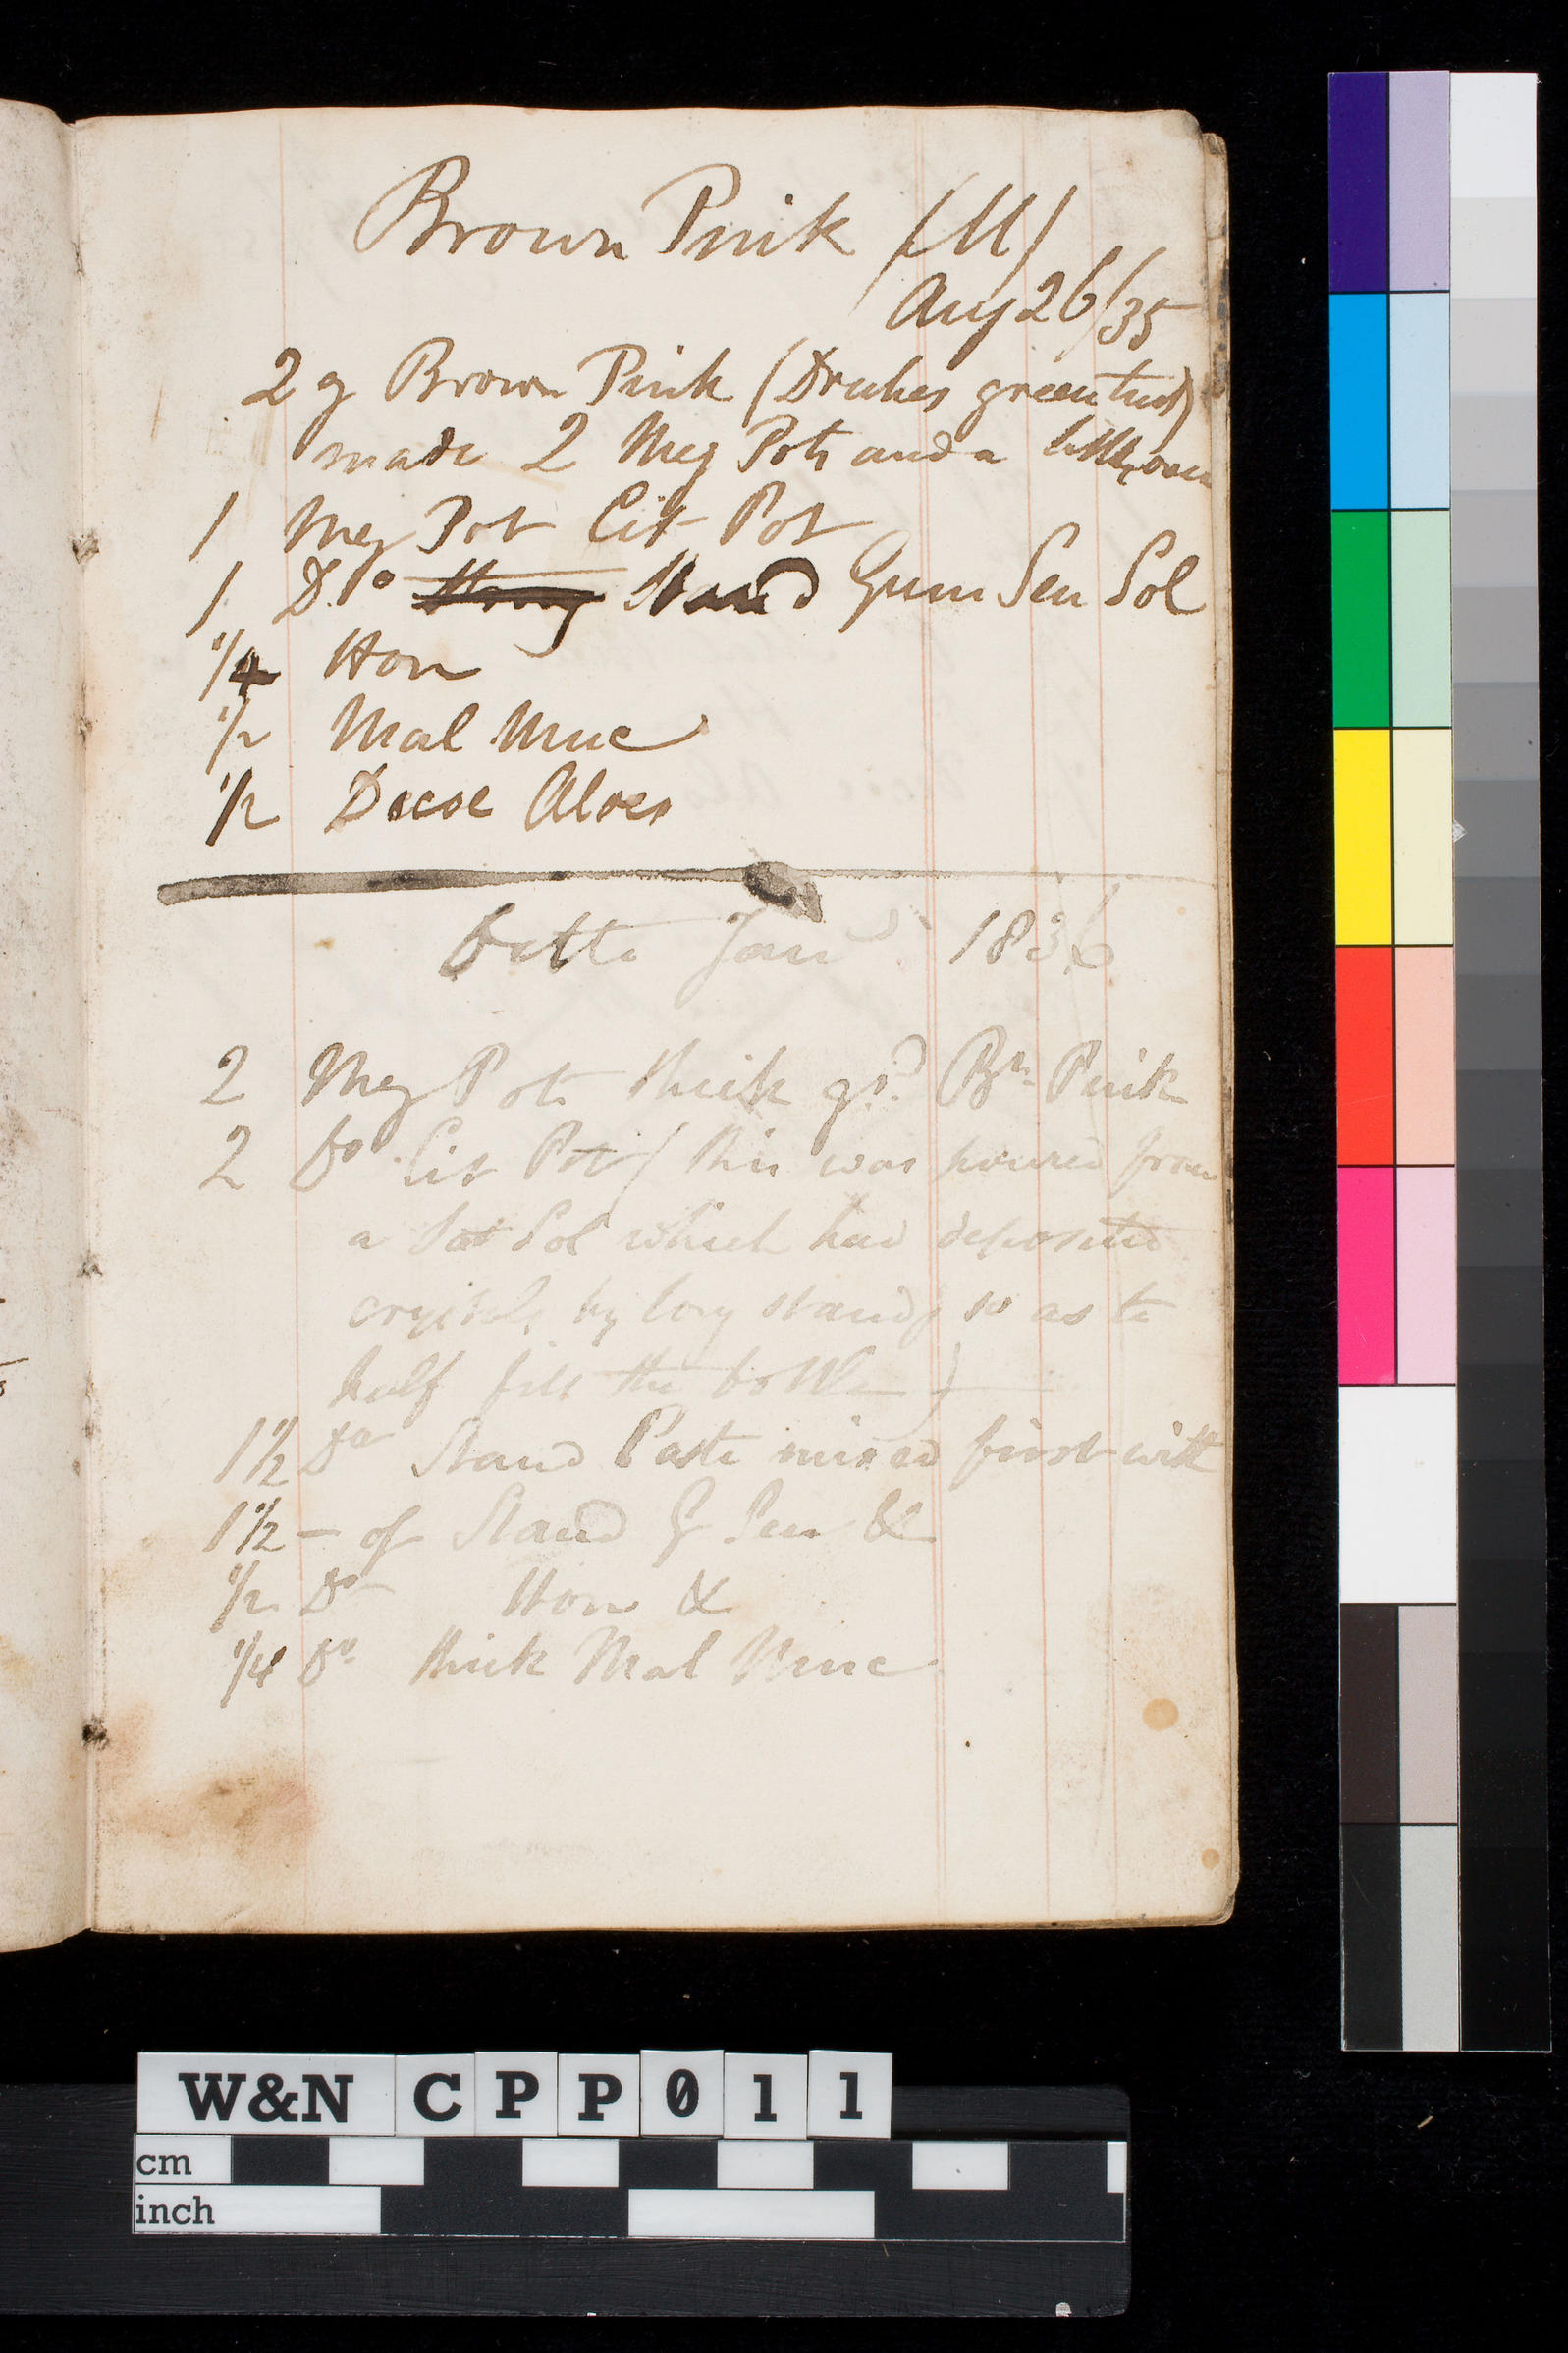 Brown Pink (M)
Aug 26/35
2 g Brown Pink (Drakes green tint)
made 2 Meg Pots and a little over
1 Meg Pot Cit Pot
1 Do Stand Gum Sen Sol
1/4 Hon
1/2 Mal Muc
1/2 Decoc Aloes
Ditto Jan 1836
2 Meg Pots thick grd Bn Pink
2 Do Cit Pot (this was poured from
a Sat Sol which had deposited
crystals by long standg so as to
half fill the bottle)
1 1/2 Do Stand Paste mixed first with
1 1/2 — of Stand G Sen &
1/2 Do Hon &
1/4 Do thick Mal Muc
W&N CPP011
cm
inch